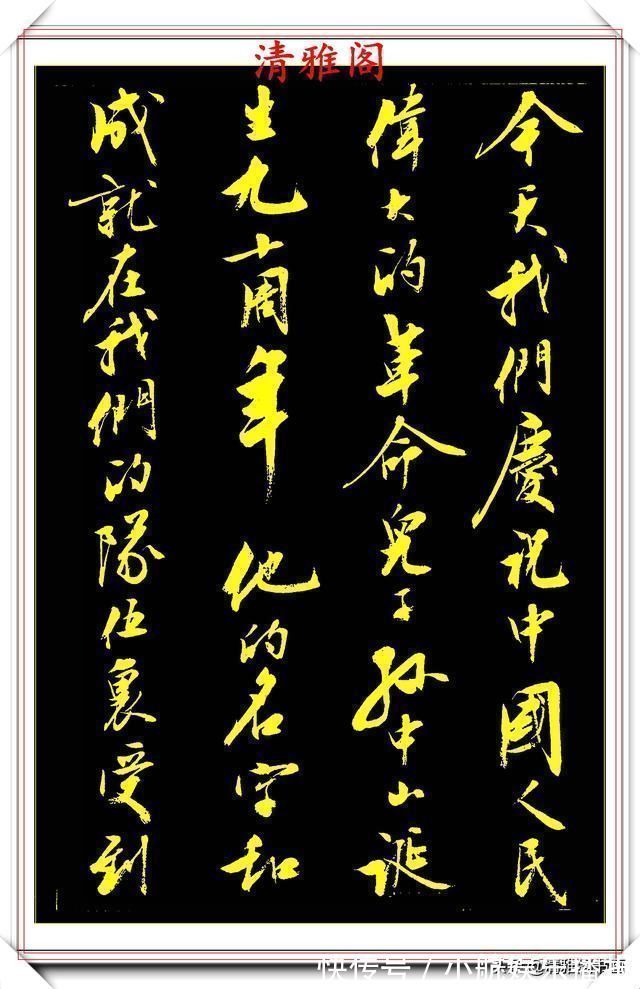 清雅阁
今天我們慶祝中國人民
偉大的革命兒子孫中山誕
生九十周年 他的名字和
成就在我們的隊伍裏受到
快传号／小脈娱乐